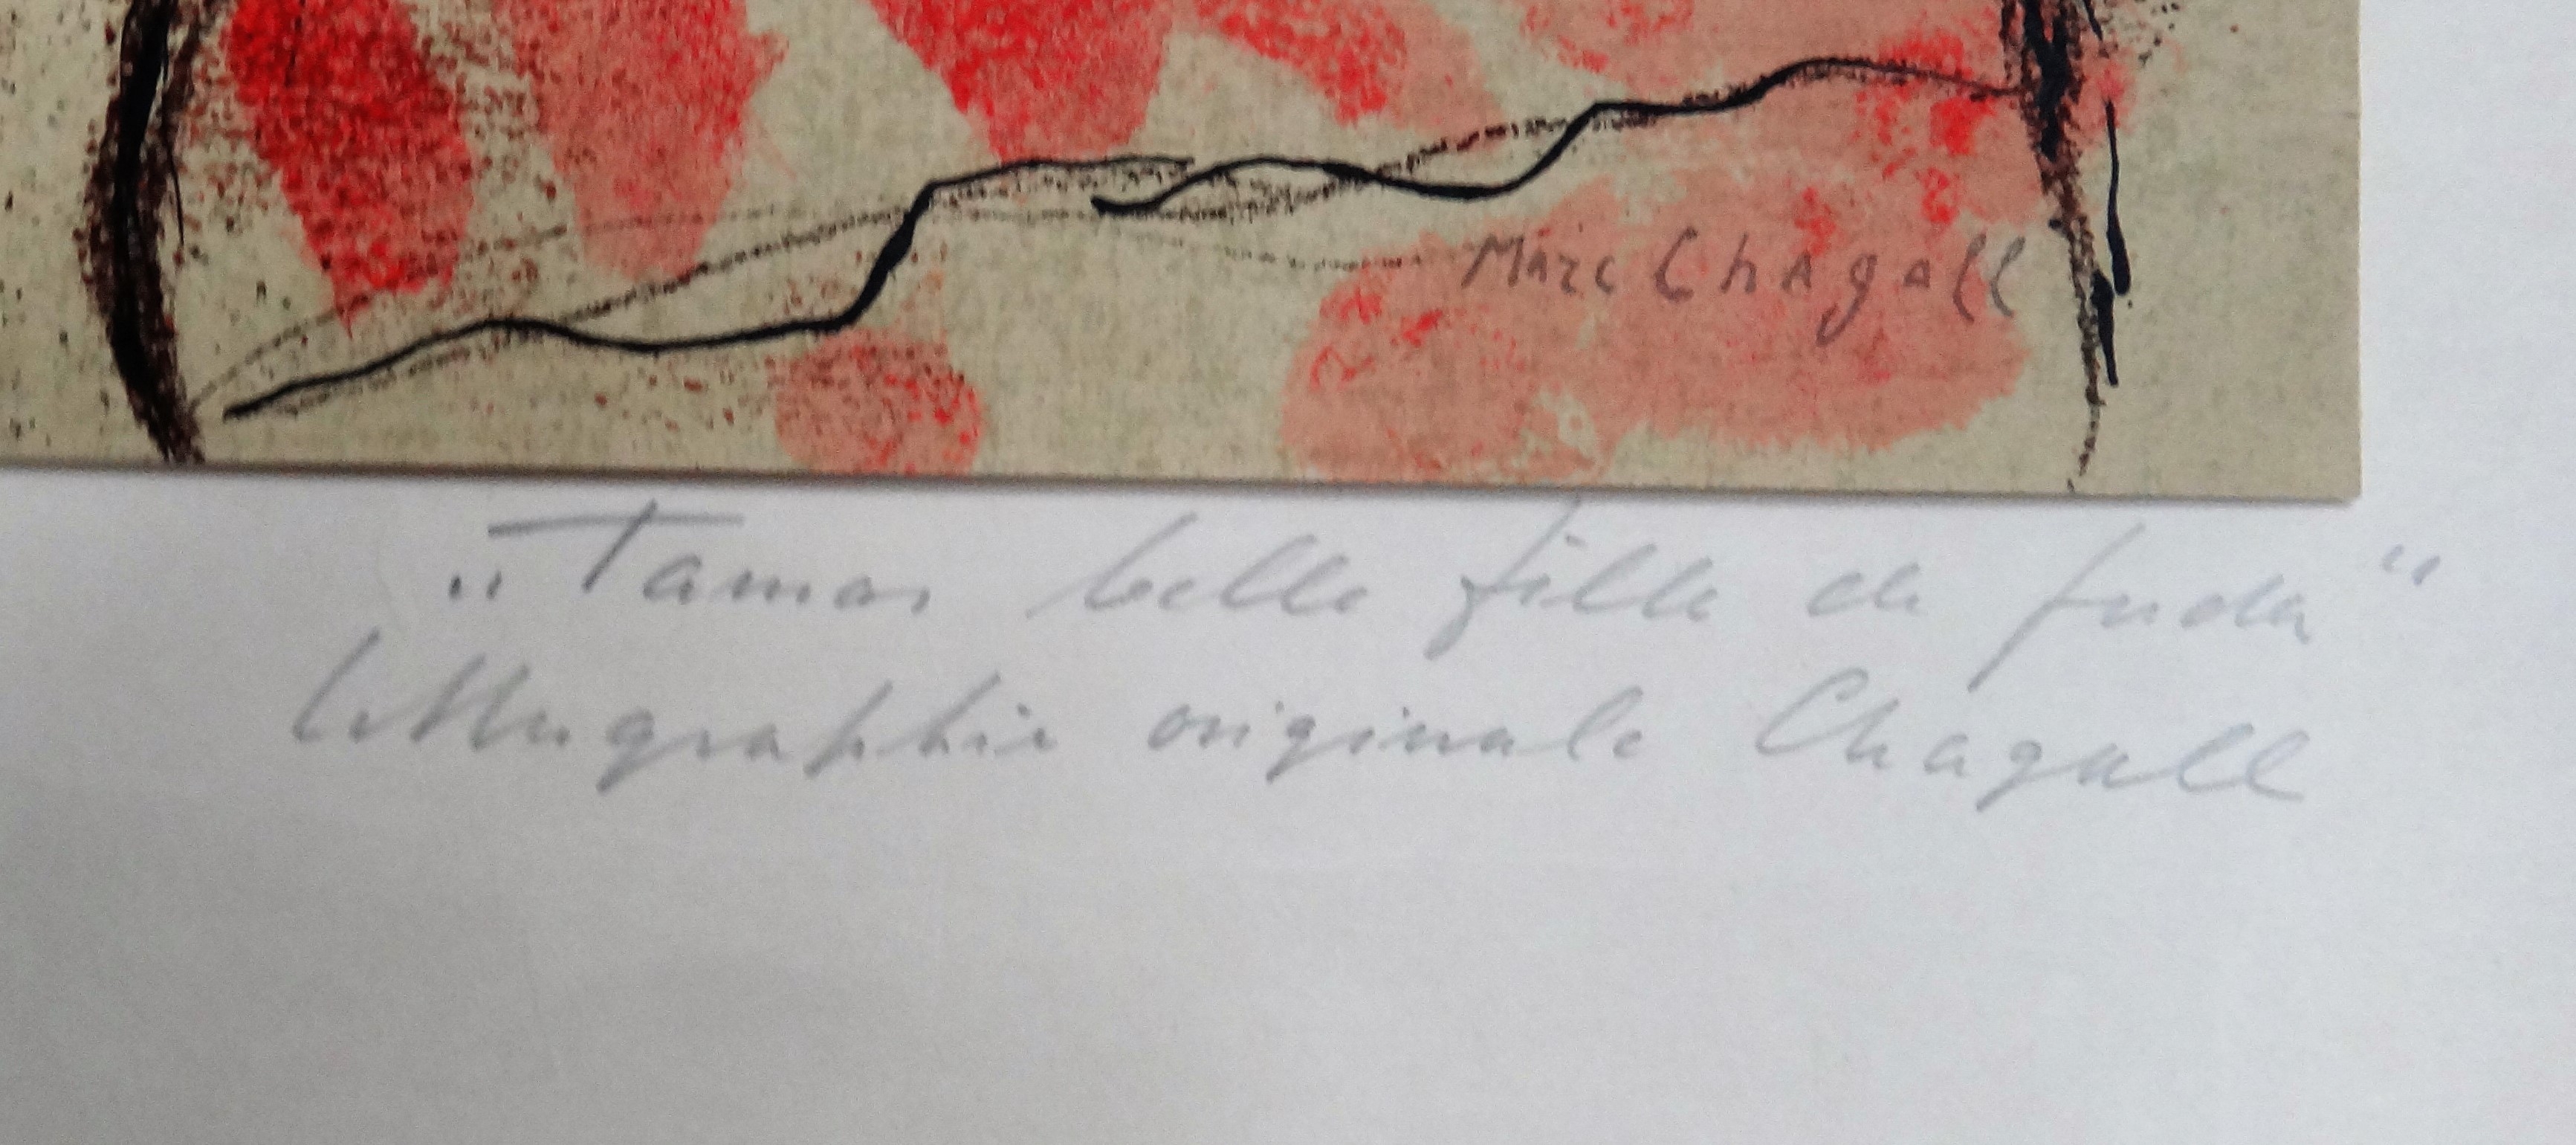 Marc Chagall
„Tamar belle fille de Juda“
lithographie originale Chagall